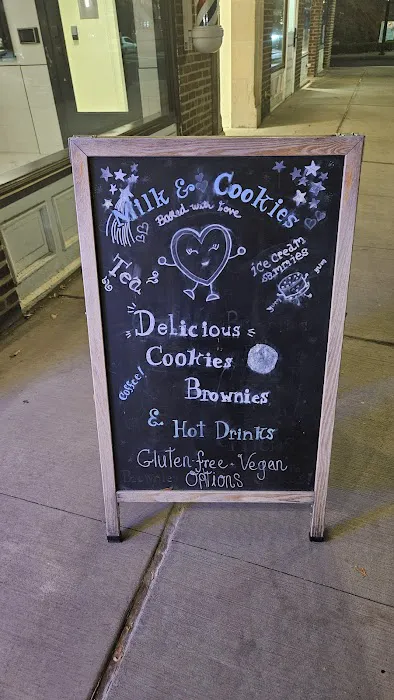 Milk & Cookies
Baked with love
Tea
ice cream
sammies
yum
yum
Delicious
Cookies
Coffee!
Brownies
& Hot Drinks
Gluten-free - Vegan
Options